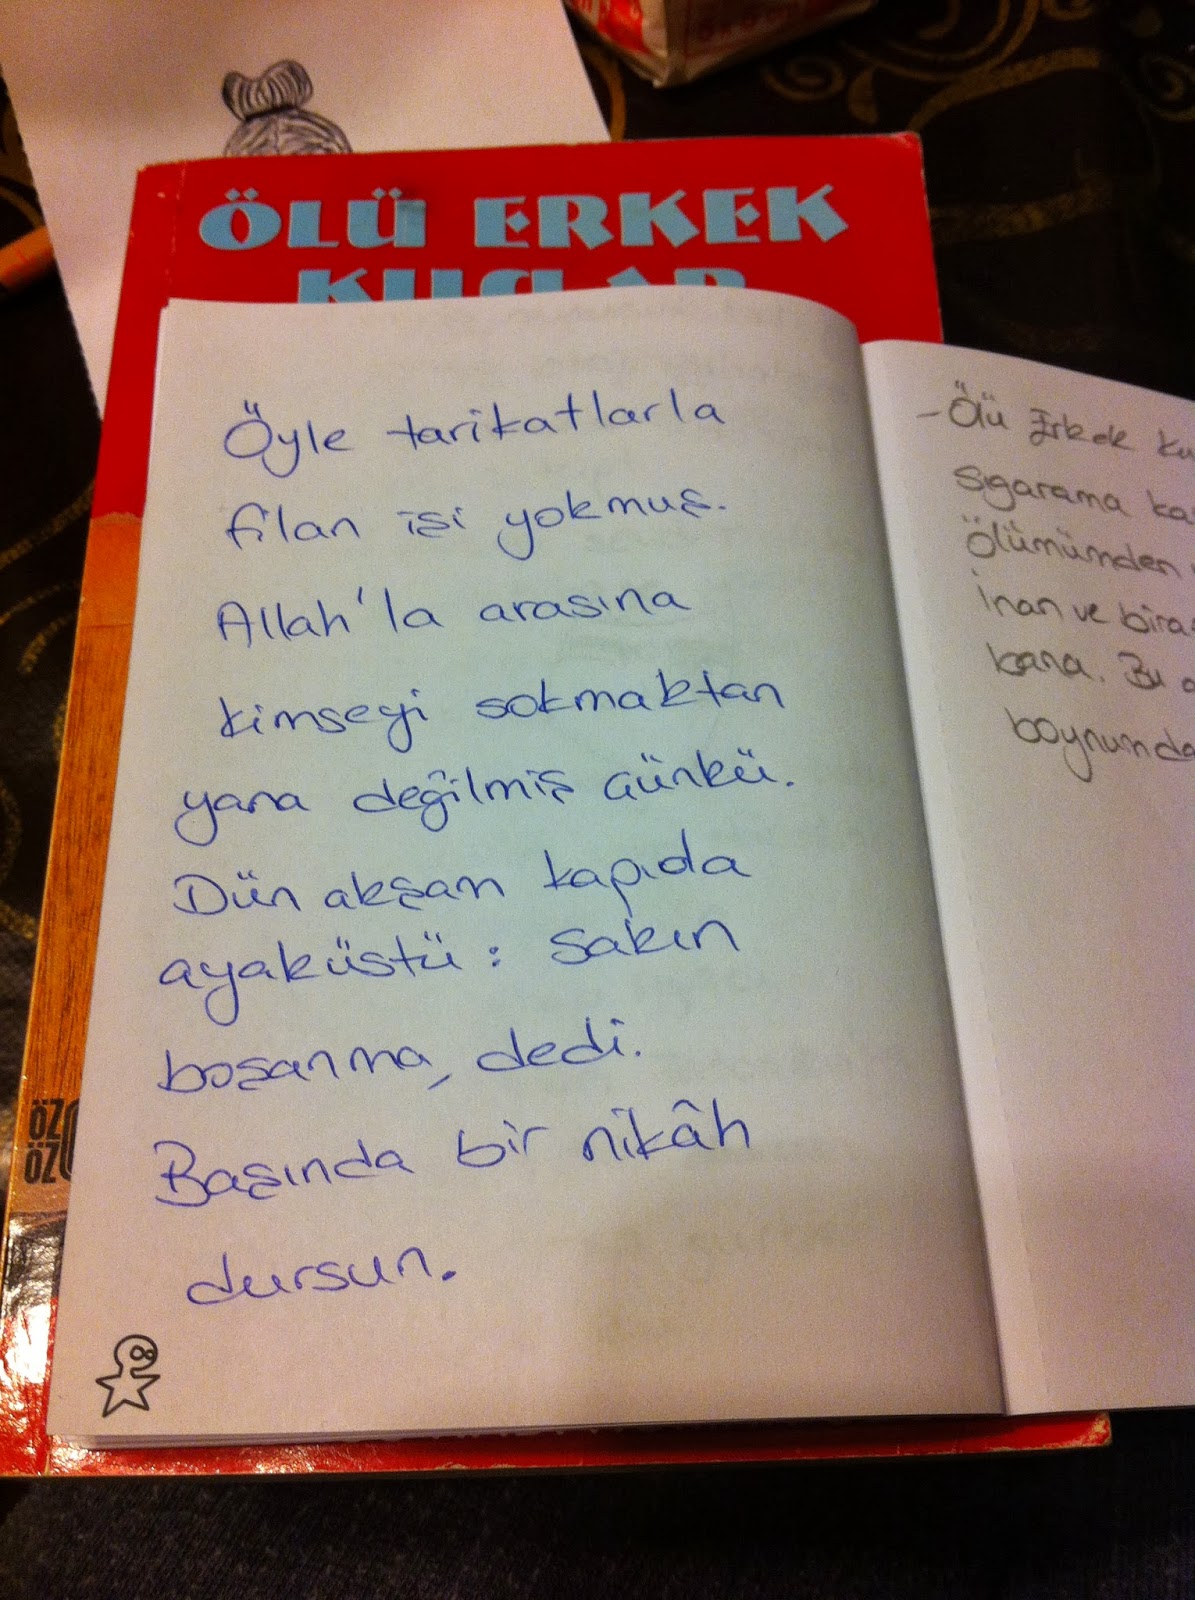 ÖLÜ ERKEK
KUŞLAR
Öyle tarikatlarla
filan işi yokmuş.
Allah'la arasına
kimseyi sokmaktan
yana değilmiş çünkü.
Dün akşam kapıda
ayaküstü: sakın
boşanma, dedi.
Başında bir nikâh
dursun.
- Ölü Erkek Ku
sigarama ka
Ölümümden
inan ve bira
bana. Bu
boynunda
ÖZ
ÖZ